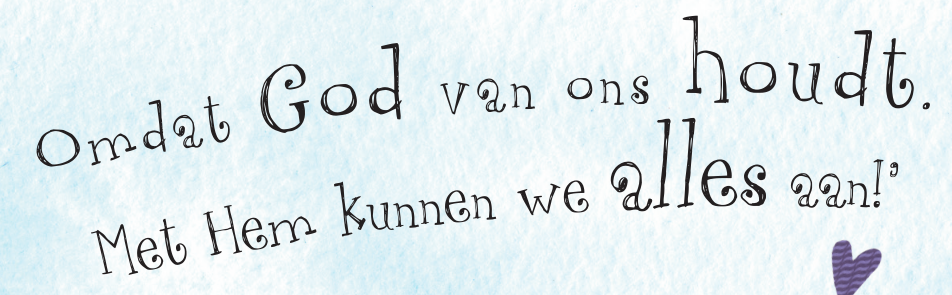 Omdat God van ons houdt.
Met Hem kunnen we alles aan!’